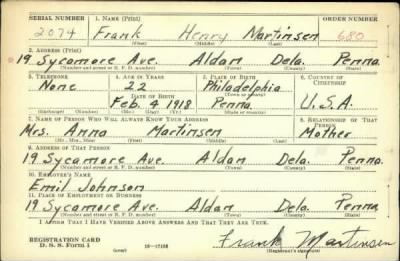 SERIAL NUMBER 1. NAME (Print) ORDER NUMBER
2074 Frank Henry Martinsen 680
(First) (Middle) (Last)
2. ADDRESS (Print)
19 Sycamore Ave. Aldan Dela. Penna.
(Number and street or R. F. D. number) (Town) (County) (State)
3. TELEPHONE 4. AGE IN YEARS 5. PLACE OF BIRTH 6. COUNTRY OF CITIZENSHIP
None 22 Philadelphia
DATE OF BIRTH (Town or county)
Feb. 4 1918 Penna. U.S.A.
(Exchange) (Number) (Mo.) (Day) (Yr.) (State or country)
7. NAME OF PERSON WHO WILL ALWAYS KNOW YOUR ADDRESS 8. RELATIONSHIP OF THAT PERSON
Mrs. Anna Martinsen Mother
(Mr., Mrs., Miss) (First) (Middle) (Last)
9. ADDRESS OF THAT PERSON
19 Sycamore Ave. Aldan Dela. Penna.
(Number and street or R. F. D. number) (Town) (County) (State)
10. EMPLOYER'S NAME
Emil Johnson
11. PLACE OF EMPLOYMENT OR BUSINESS
19 Sycamore Ave. Aldan Dela. Penna
(Number and street or R. F. D. number) (Town) (County) (State)
I AFFIRM THAT I HAVE VERIFIED ABOVE ANSWERS AND THAT THEY ARE TRUE.
REGISTRATION CARD
D. S. S. Form 1 (over) Frank Martinsen
(Registrant's signature)